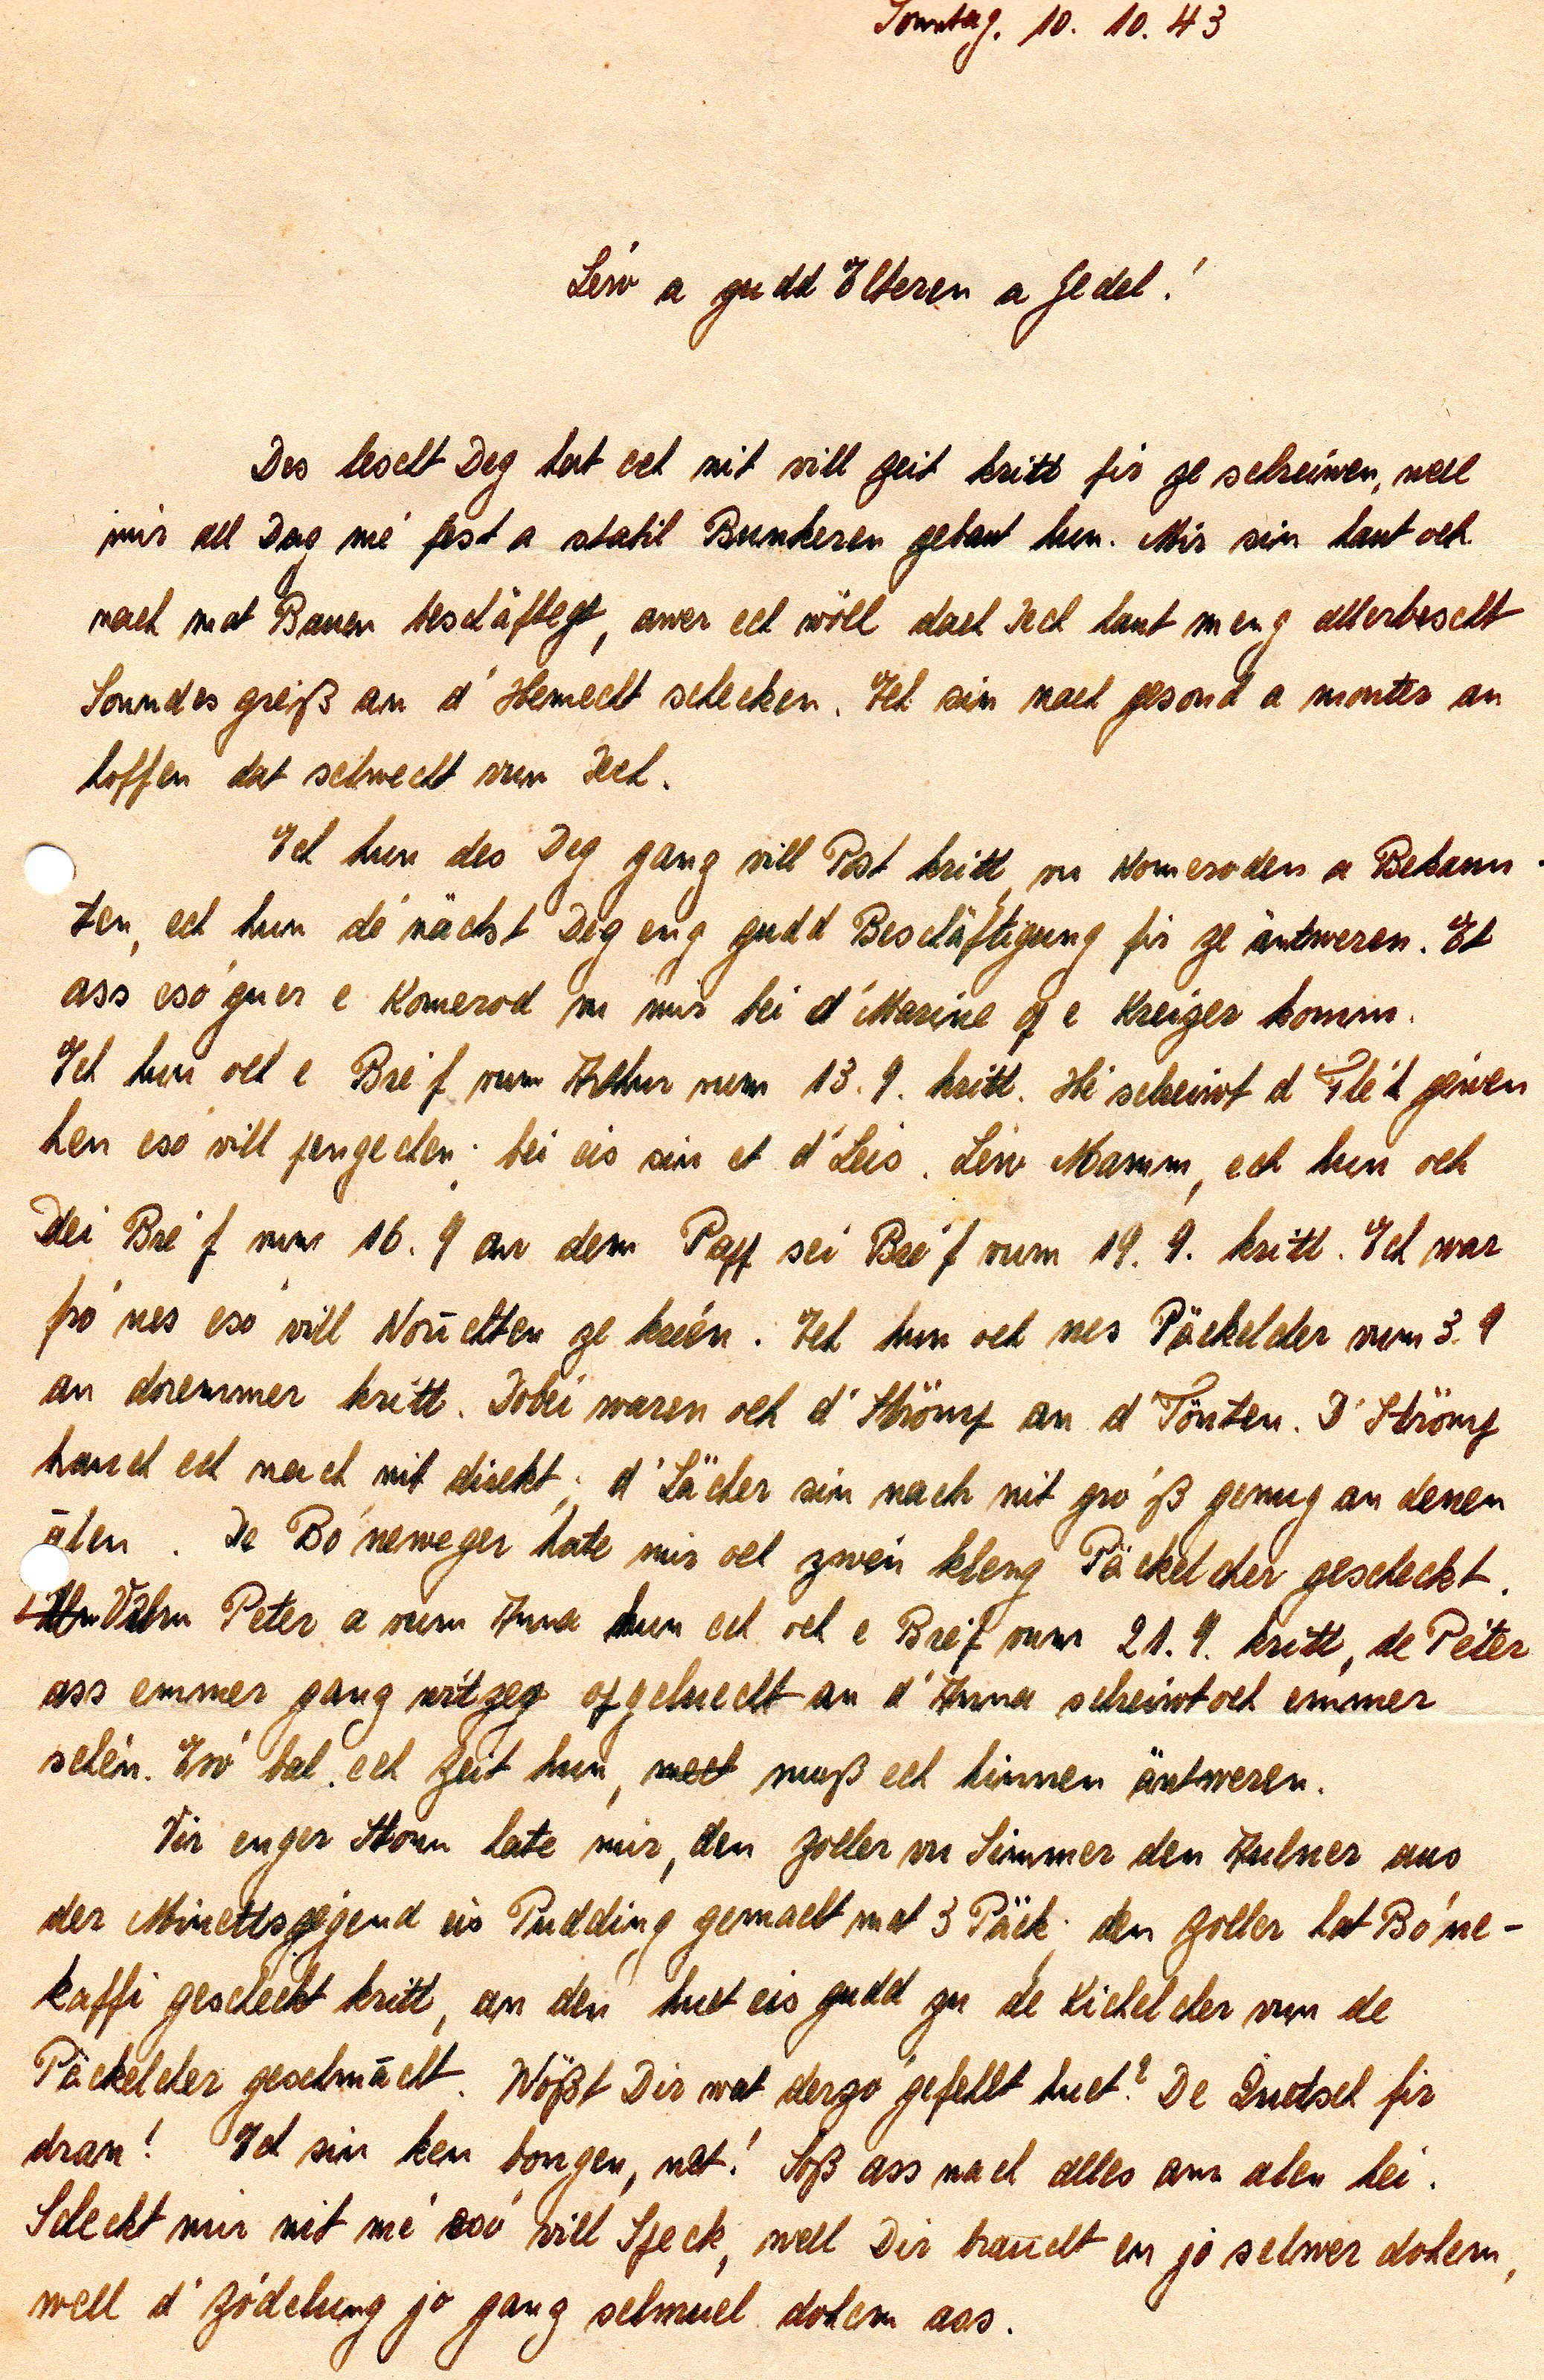 Sonntag. 10. 10. 43
Léiw a gudd Elteren a Jedel!
Des lescht Deg hat ech nit vill Zeit kritt fir ze schreiwen, well
mir all Dag mé fest a stabil Bunkeren gebaut hun. Mir sin haut och
nach mat Bauen beschäftegt, awer ech wöll dach Iech haut meng allerbescht
Sonndes greiß an d'Hemecht schecken. Ech sin nach gesond a monter an
hoffen dat selwecht vun Iech.
Ech hun des Deg gang vill Post kritt, vu Komeroden a Bekann-
ten, ech hun dé nächst Deg eng gudd Beschäftigung fir ze äntweren. Et
ass esó guer e Komerod vu mir bei d'Marine op e Kreizer komm.
Ech hun och e Bréf vum Arthur vum 13. 9. kritt. Hé schreiwt d'Fléh géiwen
hen esó vill pengechen; bei eis sin et d'Leis. Léiw Mamm, ech hun och
Dei Bréf vum 16. 9 an dem Papp sei Bréf vum 19. 9. kritt. Ech war
fró nes esó vill Noūchten ze kréien. Ech hun och nes Päckelcher vum 3. 9
an dremmer kritt. Dobei waren och d'Strömp an d'Tönten. D'Strömp
hauch ech nach nit direkt; d'Lächer sin nach nit gróß genug an denen
ālen. De Bóneweger hate mir och zwein kleng Päckelcher gescheckt.
Vum Peter a vum Anna hun ech och e Bréf vum 21. 9. kritt, de Péter
ass emmer gang witzeg opgeluecht an d'Anna schreiwt och emmer
schéin. Esó bal ech Zeit hun, muß ech hinnen äntweren.
Vir enger Stonn hate mir, den Zoller vu Simmer den Hulner aus
der Minettsgégend eis Pudding gemacht mat 3 Päck; den Zoller hat Bóne-
kaffi gescheckt kritt, an den huet eis gudd zu dé Kichelcher vun de
Päckelcher geschmācht. Wößt Dir wat derzó gefehlt huet? De Quetsch fir
dran! Ech sin ken bongen, nét! Soß ass nach alles am alen hei.
Scheckt mir nit mé esó vill Speck, well Dir braūcht en jo selwer dohem,
well d'Zódelung jo gang schmuel dohem ass.